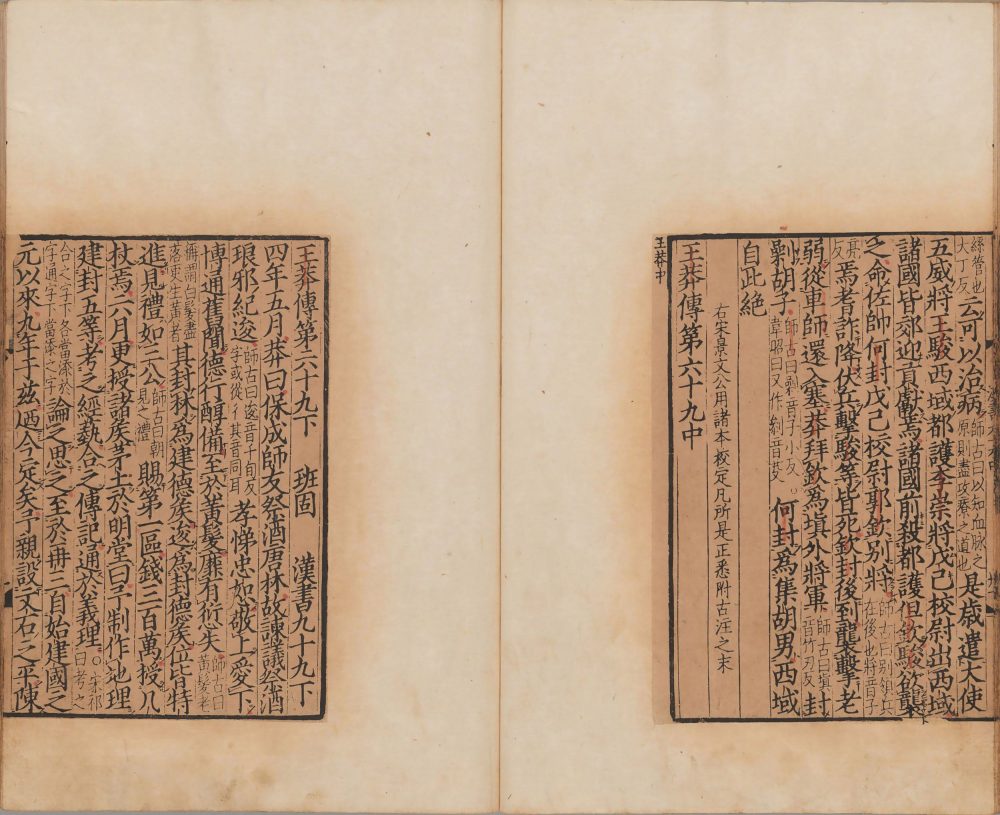 經管也大丁反云可以治病師古曰以知血脉之原則盡攻毉之道也是歲遣大使
五威將王駿西域都護李崇將戊己校尉出西域
諸國皆郊迎貢獻焉諸國前殺都護但欽駿欲襲
之命佐帥何封戊己校尉郭欽別將師古曰別領兵在後也將音子
亮反焉耆詐降伏兵擊駿等皆死欽封後到襲擊老
弱從車師還入塞莽拜欽為塡外將軍師古曰塡音竹刃反封
劋胡子師古曰劋音子小反韋昭曰又作剗音芟何封為集胡男西域
自此絕
右宋景文公用諸本校定凡所是正悉附古注之末
王莽傳第六十九中
王莽中
王莽傳第六十九下 班固 漢書九十九下
四年五月莽曰保成師友祭酒唐林故諫議祭酒
琅邪紀逡師古曰逡音千旬反字或從彳其音同耳孝悌忠恕敬上愛下
博通舊聞德行醇備至於黃髮靡有衍失師古曰黃髮老
稱謂白髮盡落更生黃者其封林為建德侯逡為封德侯位皆特
進見禮如三公師古曰朝見之禮賜第一區錢三百萬授几
杖焉六月更授諸侯茅土於明堂曰予制作地理
建封五等考之經藝合之傳記通於義理宋祁曰考之
合之字下各當添於字通字下當添之字論之思之至於再三自始建國之
元以來九年于茲廼今定矣予親設文石之平陳